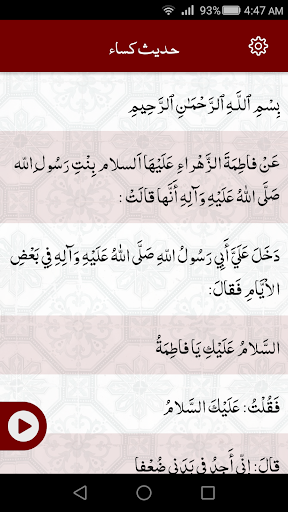 93% 4:47 AM
حديث كساء
بِسْمِ ٱللَّهِ ٱلرَّحْمَٰنِ ٱلرَّحِيمِ
عَنْ فاطِمَةَ الزَّهْراءِ عَلَيْهَا اَلسلام بِنْتِ رَسُولِ اللهِ
صَلَّى اللهُ عَلَيْهِ وَآلِهِ أَنَّها قالَتْ :
دَخَلَ عَلَيَّ أَبِي رَسُولُ اللهِ صَلَّى اللهُ عَلَيْهِ وَآلِهِ فِي بَعْضِ
الأَيَّامِ فَقالَ:
السَّلامُ عَلَيْكِ يَا فاطِمَةُ
فَقُلْتُ: عَلَيْكَ السَّلامُ
قالَ: إِنِّي أَجِدُ فِي بَدَنِي ضُعْفا